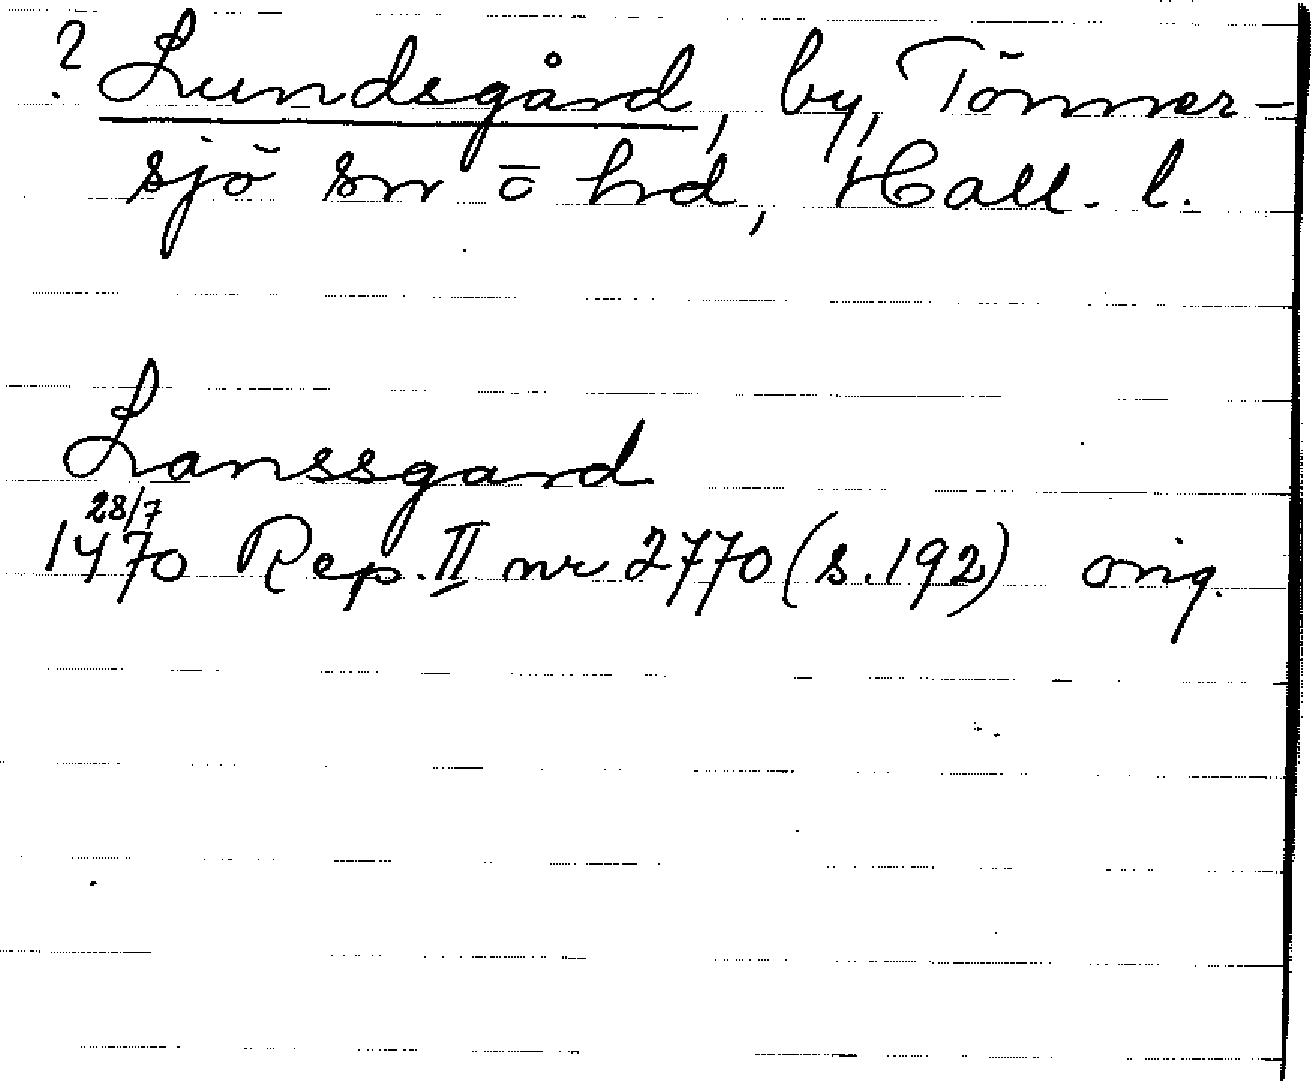 ? Lundsgård, by, Tönner-
sjö sn o hd, Hall. l.
Lanssgard
28/7
1470 Rep. II nr 2770 (s. 192) orig.